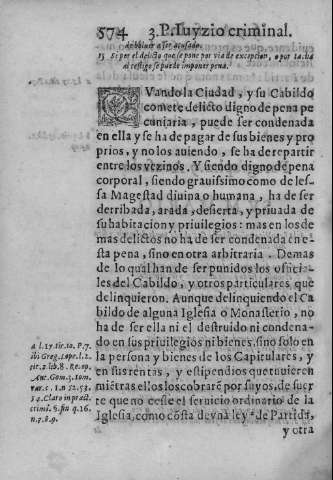 574 3.P. Iuyzio criminal.
de bolver a ser acusado.
15 Si por el delicto que se pone por via de excepcion, o por tacha
al testigo se puede imponer pena.
QVando la Ciudad, y su Cabildo
comete delicto digno de pena pe
cuniaria, puede ser condenada
en ella y se ha de pagar de sus bienes y pro
prios, y no los auiendo, se ha de repartir
entre los vezinos. Y siendo digno de pena
corporal, siendo grauissimo como de les-
sa Magestad diuina o humana, ha de ser
derribada, arada, desierta, y priuada de
su habitacion y priuilegios: mas en los de
mas delictos no ha de ser condenada en es-
ta pena, sino en otra arbitraria. Demas
de lo qual han de ser punidos los oficia-
les del Cabildo, y otros particulares que
delinquieron. Aunque delinquiendo el Ca
bildo de alguna Iglesia o Monasterio, no
ha de ser ella ni el destruido ni condena-
do en sus priuilegios ni bienes, sino solo en
la persona y bienes de los Capitulares, y
en sus rentas, y estipendios que tuuieren
miētras ellos los cobrarē por suyos, de suer
te que no cesse el seruicio ordinario de la
Iglesia, como cōsta de vna ley a de Partida,
y otra
a l.17. tit.10. P.7.
ibi Greg. Lope. l.2.
tit.2. lib.8. Re. op.
Ant. Gom. 3. tom.
var. c.1. n.52. 53.
54. Claro in pract.
crimi. §. fin q.16.
n.7.8.9.